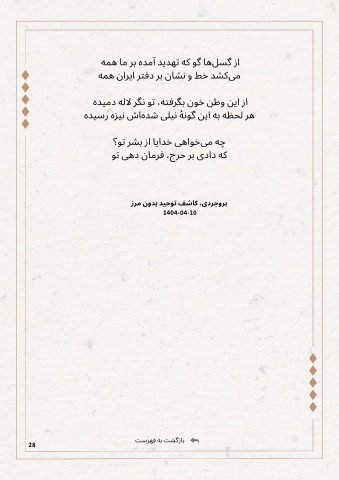 از گسل‌ها گو که تهدید آمده بر ما همه
می‌کشد خط و نشان بر دفتر ایران همه
از این وطن خون بگرفته، تو نگر لاله دمیده
هر لحظه به این گونهٔ نیلی شده‌اش نیزه رسیده
چه می‌خواهی خدایا از بشر تو؟
که دادی بر حرج، فرمان دهی تو
بروجردی، کاشف توحید بدون مرز
1404-04-10
بازگشت به فهرست
28